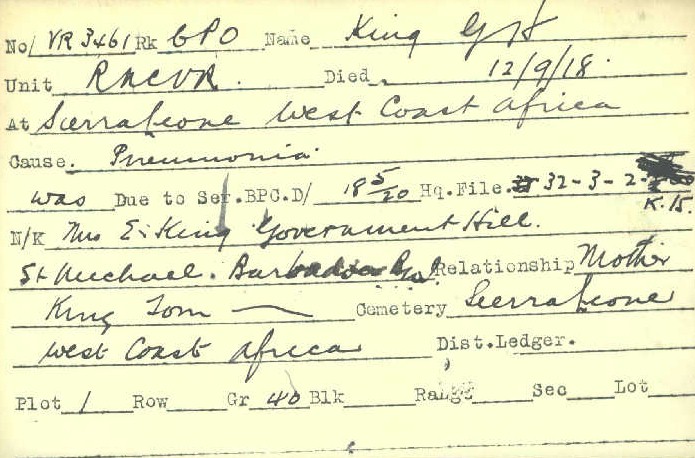 No/ VR 3461 Rk GPO Name King G H
Unit RNCVR. Died 12/9/18.
At Sierra Leone West Coast Africa
Cause. Pneumonia
was Due to Ser. BPC.D/ 18 5/20 Hq.File. 32-3-2-
K.15.
N/K Mrs E. King Government Hill.
St Michael. Barbados Relationship Mother
King Tom Cemetery Sierra Leone
West Coast Africa Dist.Ledger.
Plot 1 Row Gr 40 Blk Range Sec Lot